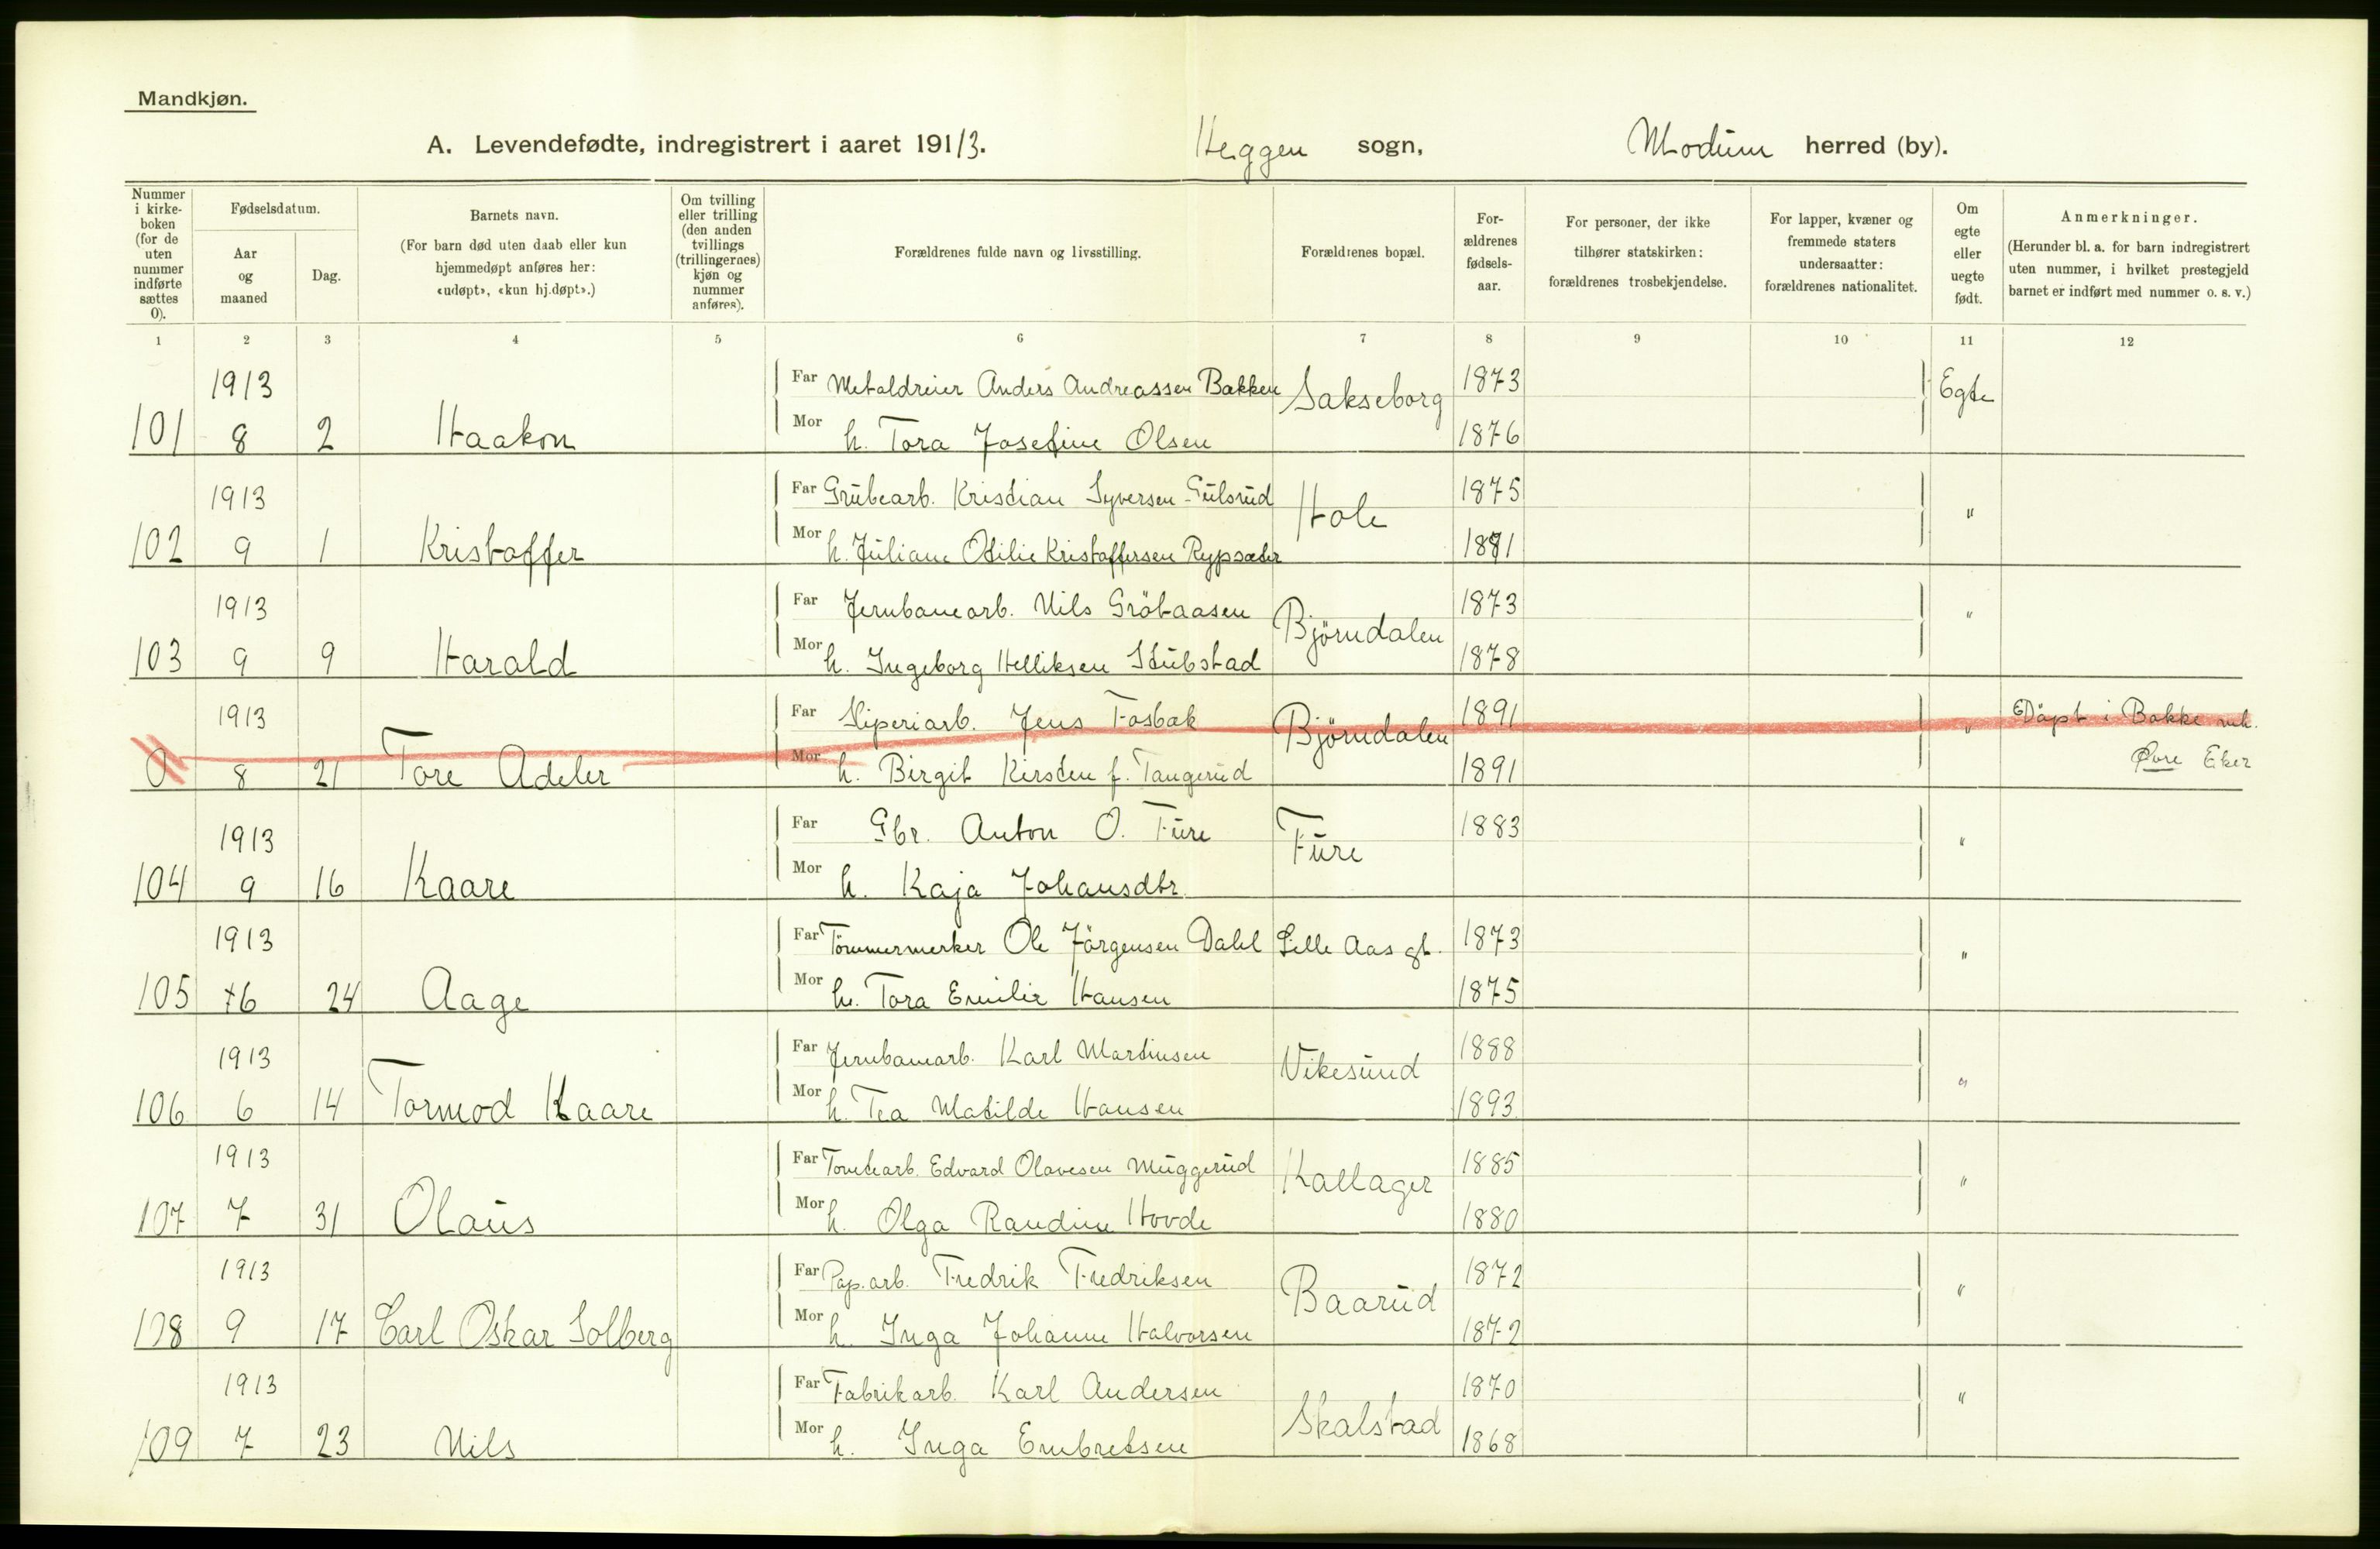 Mandkjøn.
A. Levendefødte, indregistrert i aaret 1913. Heggen sogn, Modum herred (by).
Nummer i kirke- boken (for de uten nummer indførte sættes 0).
Fødselsdatum.
Aar og maaned
Dag.
Barnets navn.
(For barn død uten daab eller kun hjemmedøpt anføres her: «udøpt», «kun hj.døpt».)
Om tvilling eller trilling (den anden tvillings (trillingernes) kjøn og nummer anføres).
Forældrenes fulde navn og livsstilling.
Forældrenes bopæl.
For- ældrenes fødsels- aar.
For personer, der ikke tilhører statskirken: forældrenes trosbekjendelse.
For lapper, kvæner og fremmede staters undersaatter: forældrenes nationalitet.
Om egte eller uegte født.
Anmerkninger.
(Herunder bl. a. for barn indregistrert uten nummer, i hvilket prestegjeld barnet er indført med nummer o. s. v.)
1 2 3 4 5 6 7 8 9 10 11 12
1913 Far Metaldreier Anders Andreassen Bakken Sakseborg 1873 Egte
101 8 2 Haakon Mor h. Tora Josefine Olsen 1876
1913 Far Grubearb. Kristian Syversen Gulsrud Hole 1875 "
102 9 1 Kristoffer Mor h. Juliane Otilie Kristoffersen Rypsæter 1881
1913 Far Jernbanearb. Nils Grötaasen Björndalen 1873 "
103 9 9 Harald Mor h. Ingeborg Helliksen Stubstad 1878
1913 Far Sliperiarb. Jens Fosbæk Björndalen 1891 " Döpt i Bakke
0 8 21 Tore Adeler Mor h. Birgit Kirsten f. Tangerud 1891 Øvre Eker
1913 Far Gbr. Anton O. Fure Fure 1883 "
104 9 16 Kaare Mor h. Kaja Johansdtr.
1913 Far Tömmermerker Ole Jörgensen Dahl Lille Aas gt. 1873 "
105 6 24 Aage Mor h. Tora Emilie Hansen 1875
1913 Far Jernbanearb. Karl Martinsen Vikesund 1888 "
106 6 14 Tormod Kaare Mor h. Tea Matilde Hansen 1893
1913 Far Tomtearb. Edvard Olavesen Muggerud Kallager 1885 "
107 7 31 Olaus Mor h. Olga Randine Hovde 1880
1913 Far Pap.arb. Fredrik Fredriksen Baarud 1872 "
108 9 17 Carl Oskar Solberg Mor h. Inga Johanne Halvorsen 1872
1913 Far Fabrikarb. Karl Andersen Skalstad 1870 "
109 7 23 Nils Mor h. Inga Embretsen 1868